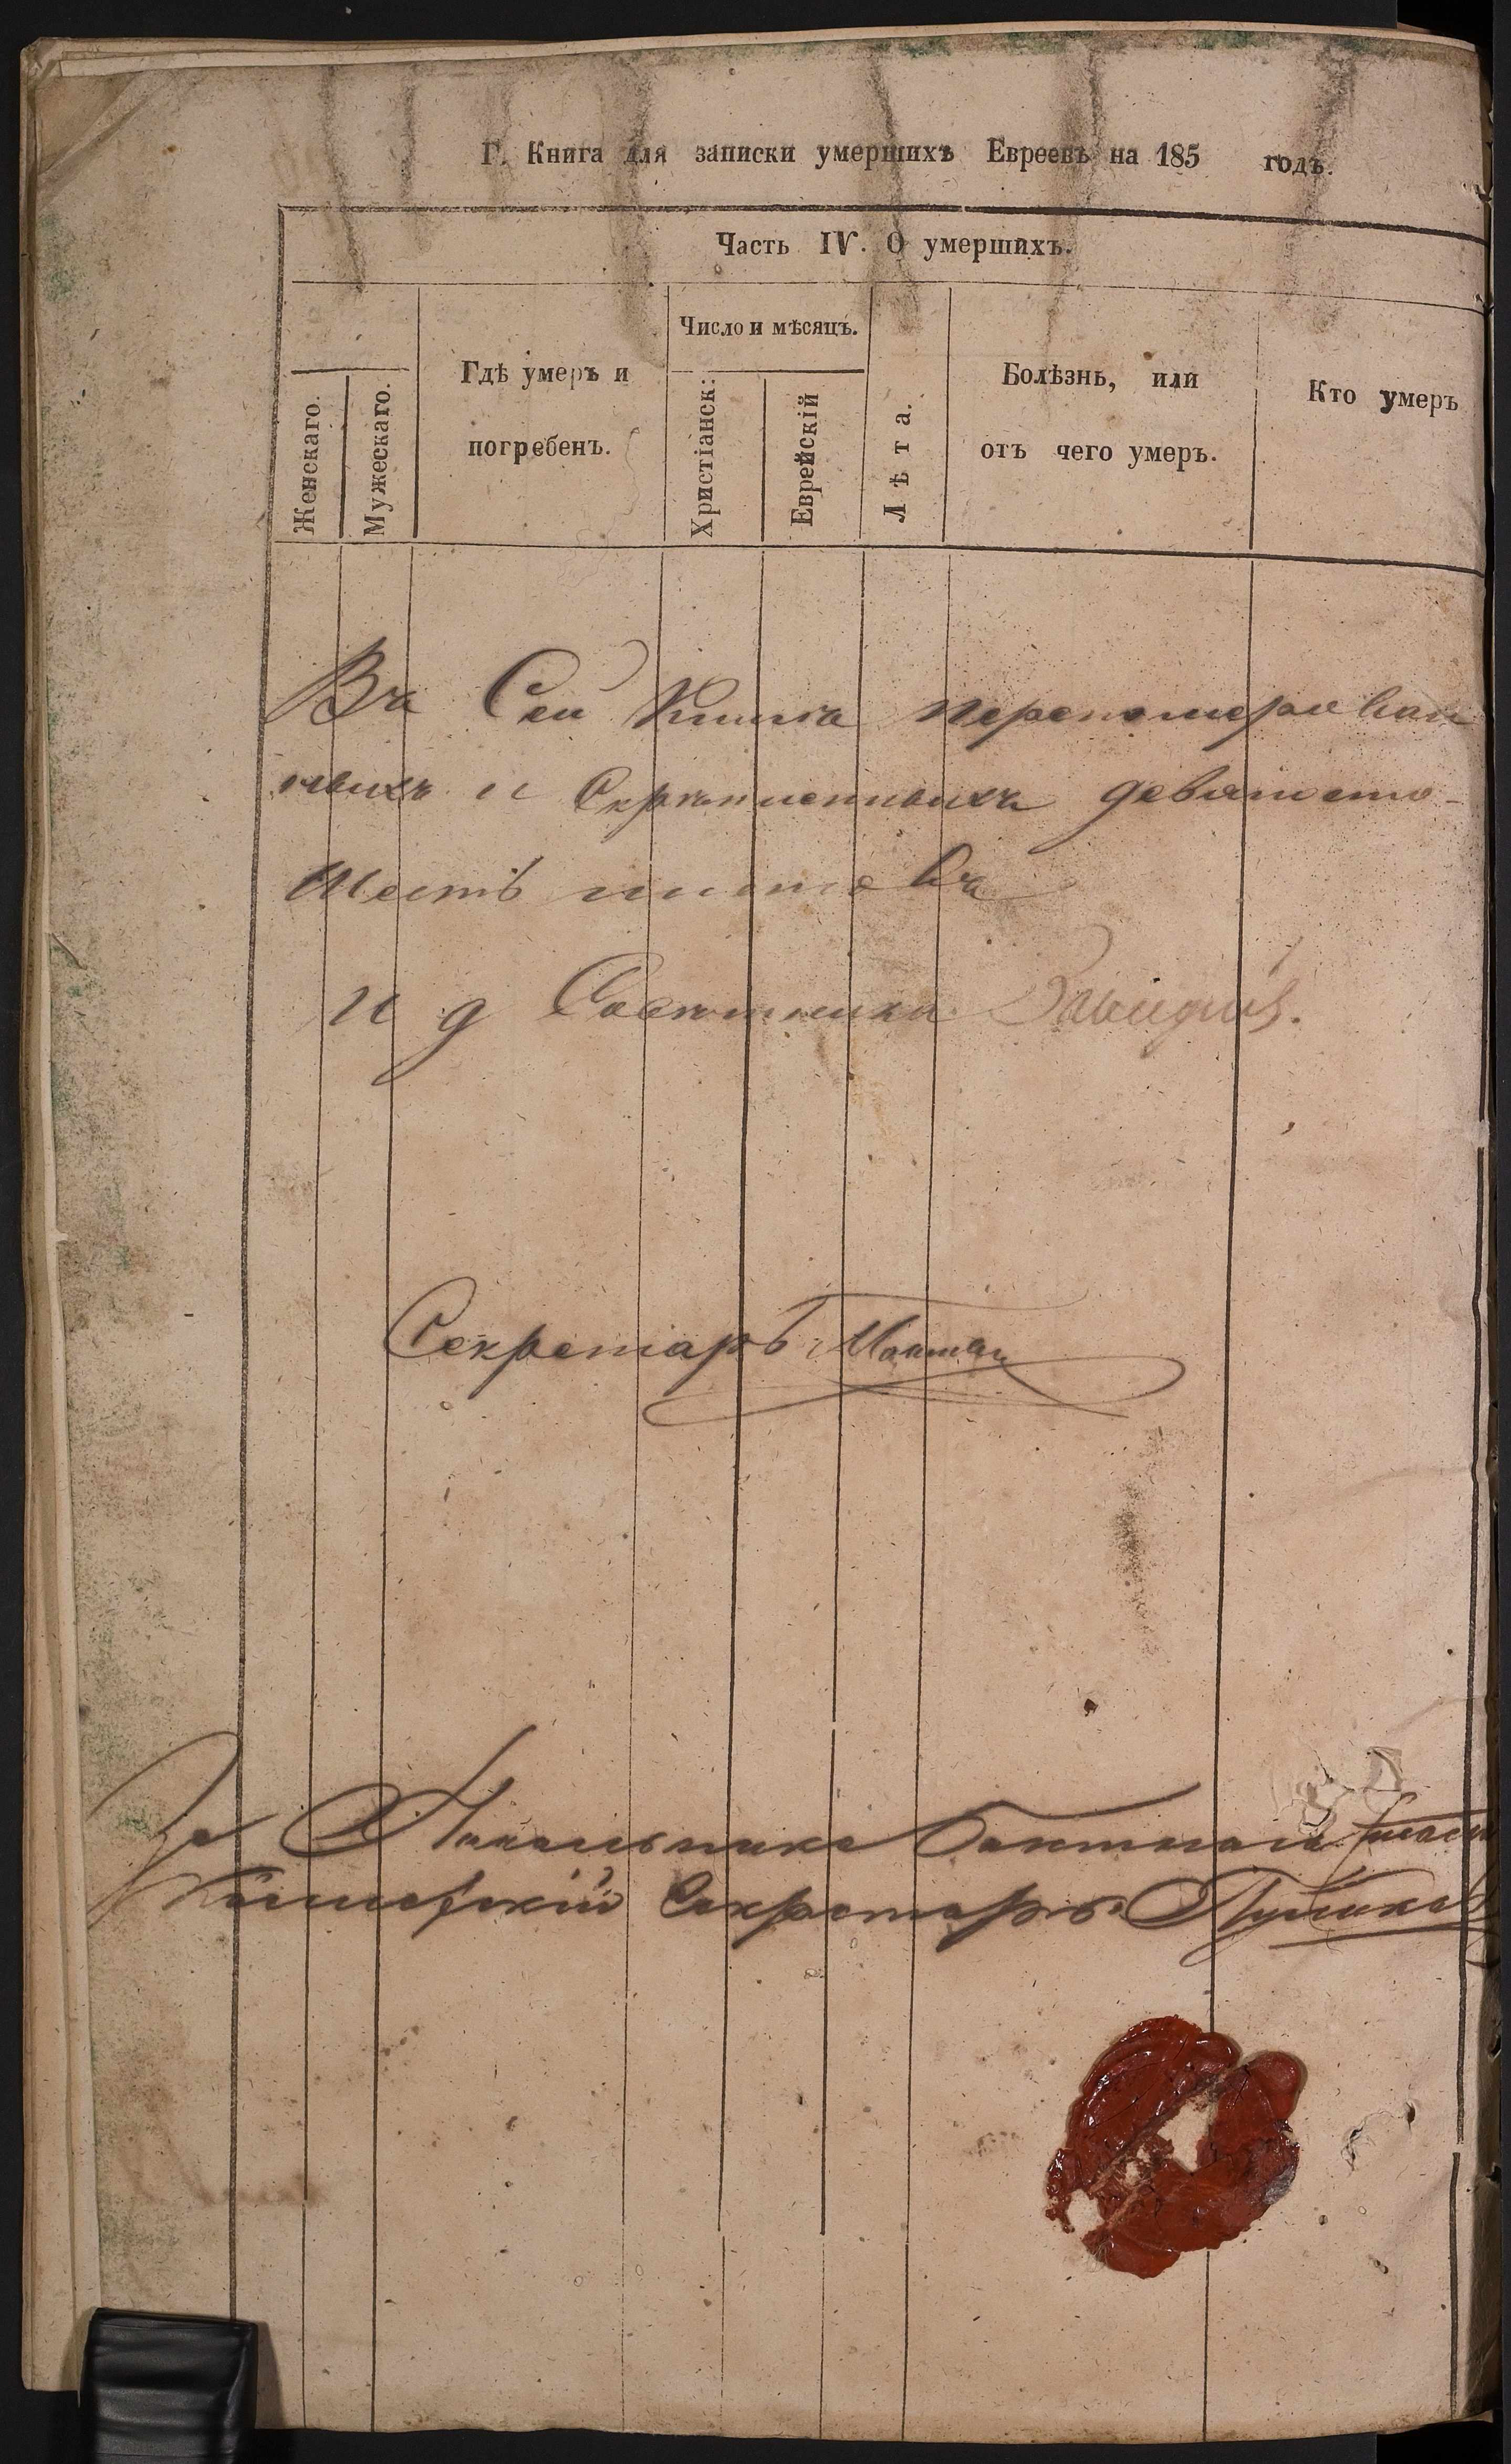 Г. Книга для записки умершихъ Евреевъ на 185 годъ.
Часть IV. О умершихъ.
Женскаго.
Мужескаго.
Гдѣ умеръ и
погребенъ.
Число и мѣсяцъ.
Христіанск:
Еврейскій
Лѣта.
Болѣзнь, или
отъ чего умеръ.
Кто умеръ
Въ Сей Книгѣ перенумерован
ныхъ и Скрѣпленныхъ девяносто-
Шесть листовъ
И д Совѣтника
Секретарь
За Начальника
Коллежскій Секретарь